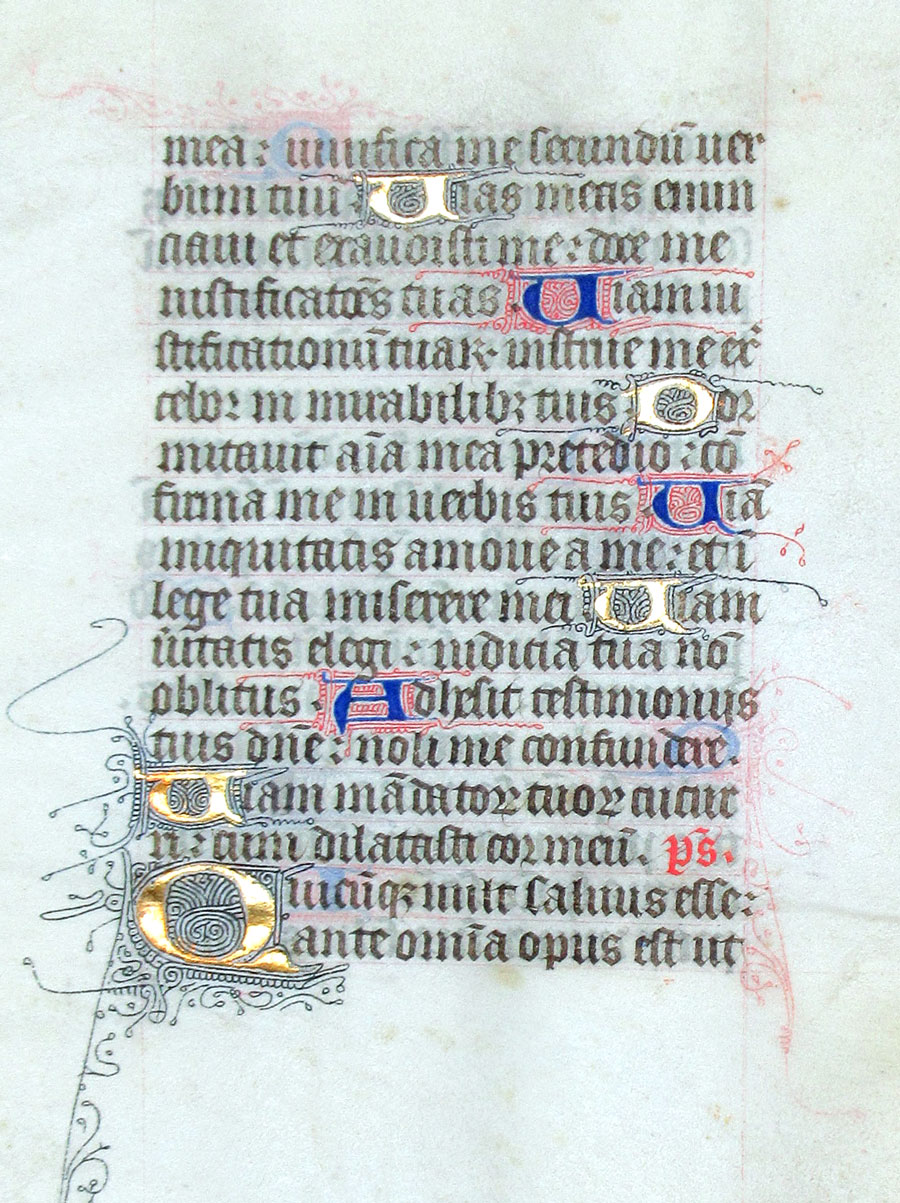 mea: uiuifica me secundū uer
bum tuū. Uias meas enun
ciaui et exaudisti me: doce me
iustificatōes tuas. Uiam iu
stificationū tuaꝝ instrue me ex̄
cebor in mirabilibꝫ tuis. Dor
mitauit aīa mea pre tedio: cō
firma me in uerbis tuis Uiā
iniquitatis amoue a me: et i
lege tua miserere mei Uiam
ūitatis elegi: iudicia tua nō
oblitus. Adhesit testimonijs
tuis dn̄e: noli me confundere.
Uiam mādatoꝝ tuoꝝ cucur
ri: cum dilatasti cor meū. p̄s.
Quicūqꝫ uult saluus esse:
ante omīa opus est ut